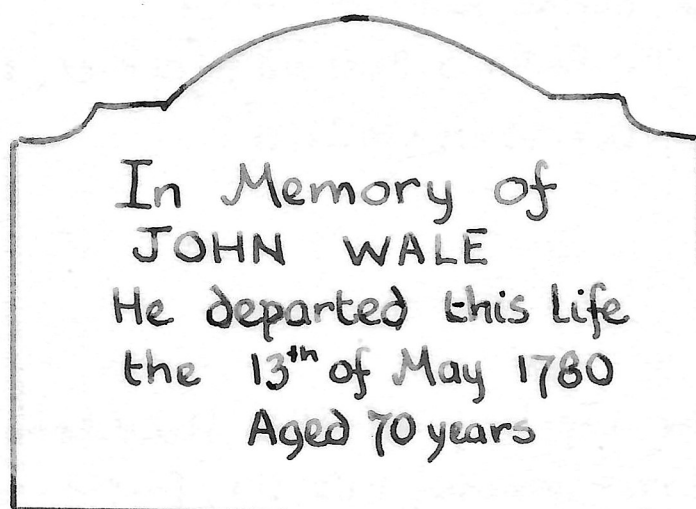 In Memory of
JOHN WALE
He departed this life
the 13th of May 1780
Aged 70 years